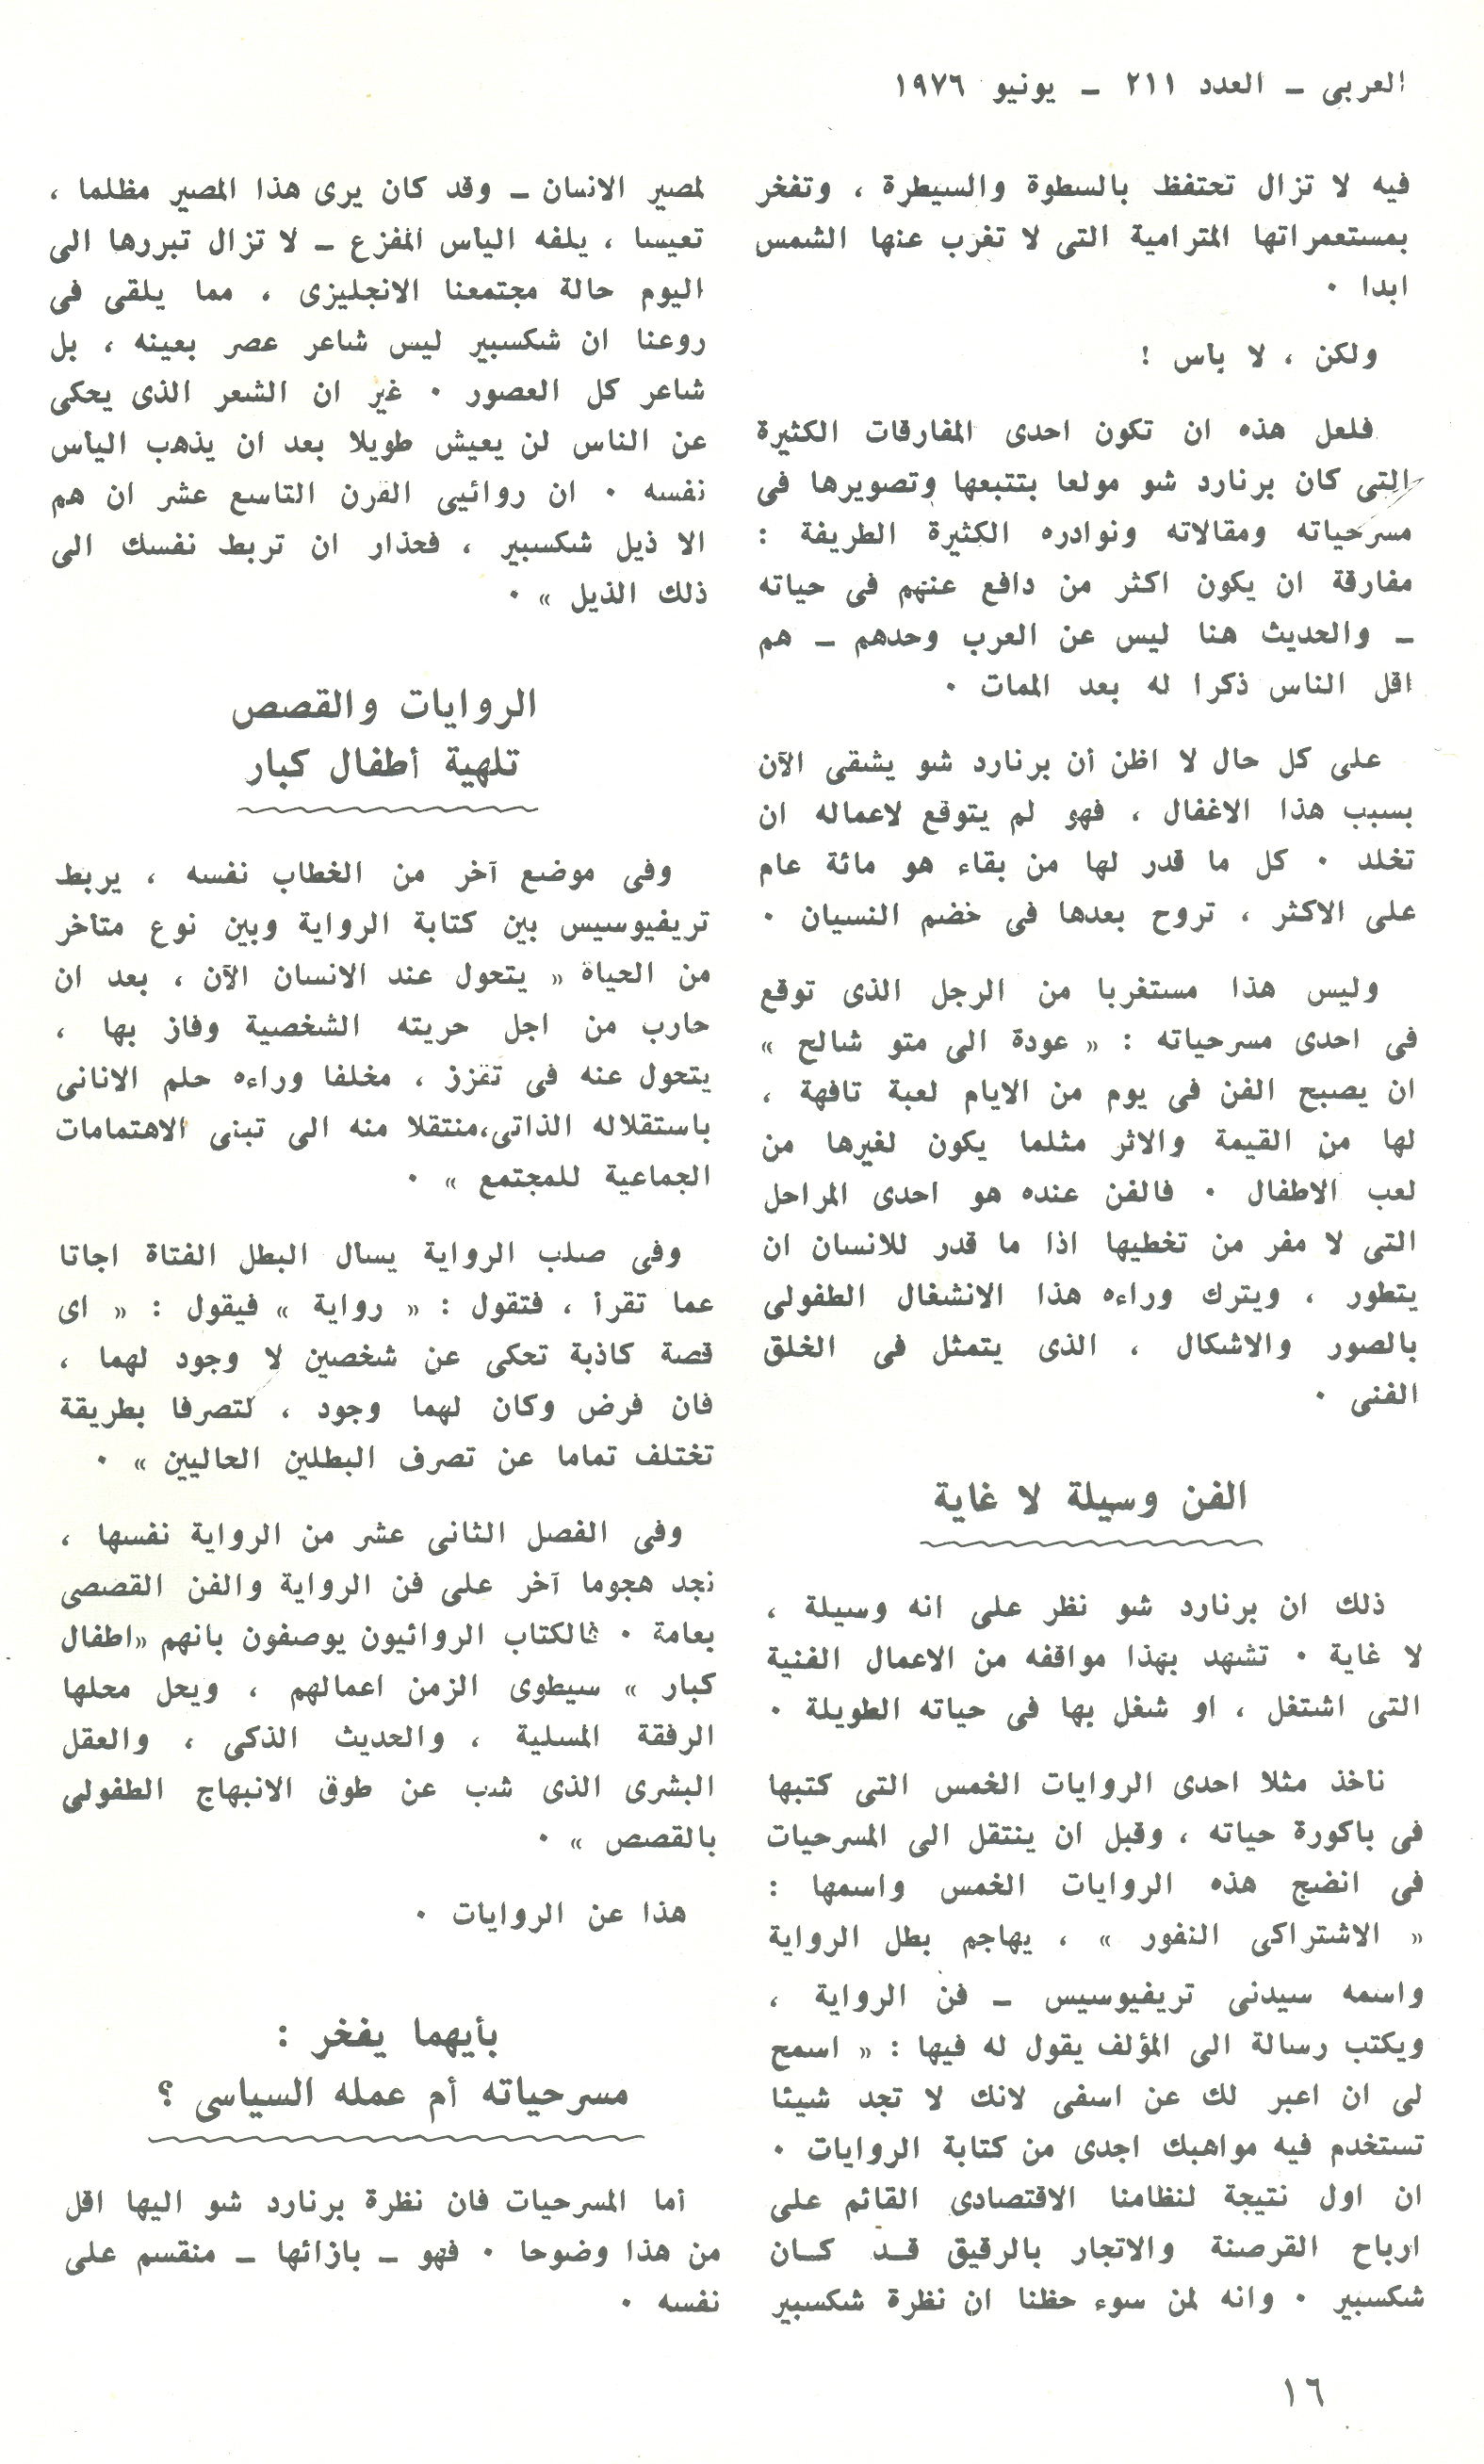 العربى ـ العدد ٢١١ ـ يونيو ١٩٧٦
فيه لا تزال تحتفظ بالسطوة والسيطرة ، وتفخر
بمستعمراتها المترامية التى لا تغرب عنها الشمس
ابدا ٠
ولكن ، لا بأس !
فلعل هذه ان تكون احدى المفارقات الكثيرة
التى كان برنارد شو مولعا بتتبعها وتصويرها فى
مسرحياته ومقالاته ونوادره الكثيرة الطريفة :
مفارقة ان يكون اكثر من دافع عنهم فى حياته
ـ والحديث هنا ليس عن العرب وحدهم ـ هم
اقل الناس ذكرا له بعد الممات ٠
على كل حال لا اظن أن برنارد شو يشقى الآن
بسبب هذا الاغفال ، فهو لم يتوقع لاعماله ان
تخلد ٠ كل ما قدر لها من بقاء هو مائة عام
على الاكثر ، تروح بعدها فى خضم النسيان ٠
وليس هذا مستغربا من الرجل الذى توقع
فى احدى مسرحياته : « عودة الى متو شالح »
ان يصبح الفن فى يوم من الايام لعبة تافهة ،
لها من القيمة والاثر مثلما يكون لغيرها من
لعب الاطفال ٠ فالفن عنده هو احدى المراحل
التى لا مفر من تخطيها اذا ما قدر للانسان ان
يتطور ، ويترك وراءه هذا الانشغال الطفولى
بالصور والاشكال ، الذى يتمثل فى الخلق
الفنى ٠
الفن وسيلة لا غاية
ذلك ان برنارد شو نظر على انه وسيلة ،
لا غاية ٠ تشهد بهذا مواقفه من الاعمال الفنية
التى اشتغل ، او شغل بها فى حياته الطويلة ٠
ناخذ مثلا احدى الروايات الخمس التى كتبها
فى باكورة حياته ، وقبل ان ينتقل الى المسرحيات
فى انضج هذه الروايات الخمس واسمها :
« الاشتراكى النفور » ، يهاجم بطل الرواية
واسمه سيدنى تريفيوسيس ـ فن الرواية ،
ويكتب رسالة الى المؤلف يقول له فيها : « اسمح
لى ان اعبر لك عن اسفى لانك لا تجد شيئا
تستخدم فيه مواهبك اجدى من كتابة الروايات ٠
ان اول نتيجة لنظامنا الاقتصادى القائم على
ارباح القرصنة والاتجار بالرقيق قـد كـان
شكسبير ٠ وانه لمن سوء حظنا ان نظرة شكسبير
لمصير الانسان ـ وقد كان يرى هذا المصير مظلما ،
تعيسا ، يلفه الياس المفزع ـ لا تزال تبررها الى
اليوم حالة مجتمعنا الانجليزى ، مما يلقى فى
روعنا ان شكسبير ليس شاعر عصر بعينه ، بل
شاعر كل العصور ٠ غير ان الشعر الذى يحكى
عن الناس لن يعيش طويلا بعد ان يذهب اليأس
نفسه ٠ ان روائيى القرن التاسع عشر ان هم
الا ذيل شكسبير ، فحذار ان تربط نفسك الى
ذلك الذيل » ٠
الروايات والقصص
تلهية أطفال كبار
وفى موضع آخر من الخطاب نفسه ، يربط
تريفيوسيس بين كتابة الرواية وبين نوع متاخر
من الحياة « يتحول عند الانسان الآن ، بعد ان
حارب من اجل حريته الشخصية وفاز بها ،
يتحول عنه فى تقزز ، مخلفا وراءه حلم الانانى
باستقلاله الذاتى،منتقلا منه الى تبنى الاهتمامات
الجماعية للمجتمع » ٠
وفى صلب الرواية يسأل البطل الفتاة اجاتا
عما تقرأ ، فتقول : « رواية » فيقول : « اى
قصة كاذبة تحكى عن شخصين لا وجود لهما ،
فان فرض وكان لهما وجود ، لتصرفا بطريقة
تختلف تماما عن تصرف البطلين الحاليين » ٠
وفى الفصل الثانى عشر من الرواية نفسها ،
نجد هجوما آخر على فن الرواية والفن القصصى
بعامة ٠ فالكتاب الروائيون يوصفون بانهم «اطفال
كبار » سيطوى الزمن اعمالهم ، ويحل محلها
الرفقة المسلية ، والحديث الذكى ، والعقل
البشرى الذى شب عن طوق الانبهاج الطفولى
بالقصص » ٠
هذا عن الروايات ٠
بأيهما يفخر :
مسرحياته أم عمله السياسى ؟
أما المسرحيات فان نظرة برنارد شو اليها اقل
من هذا وضوحا ٠ فهو ـ بازائها ـ منقسم على
نفسه ٠
١٦